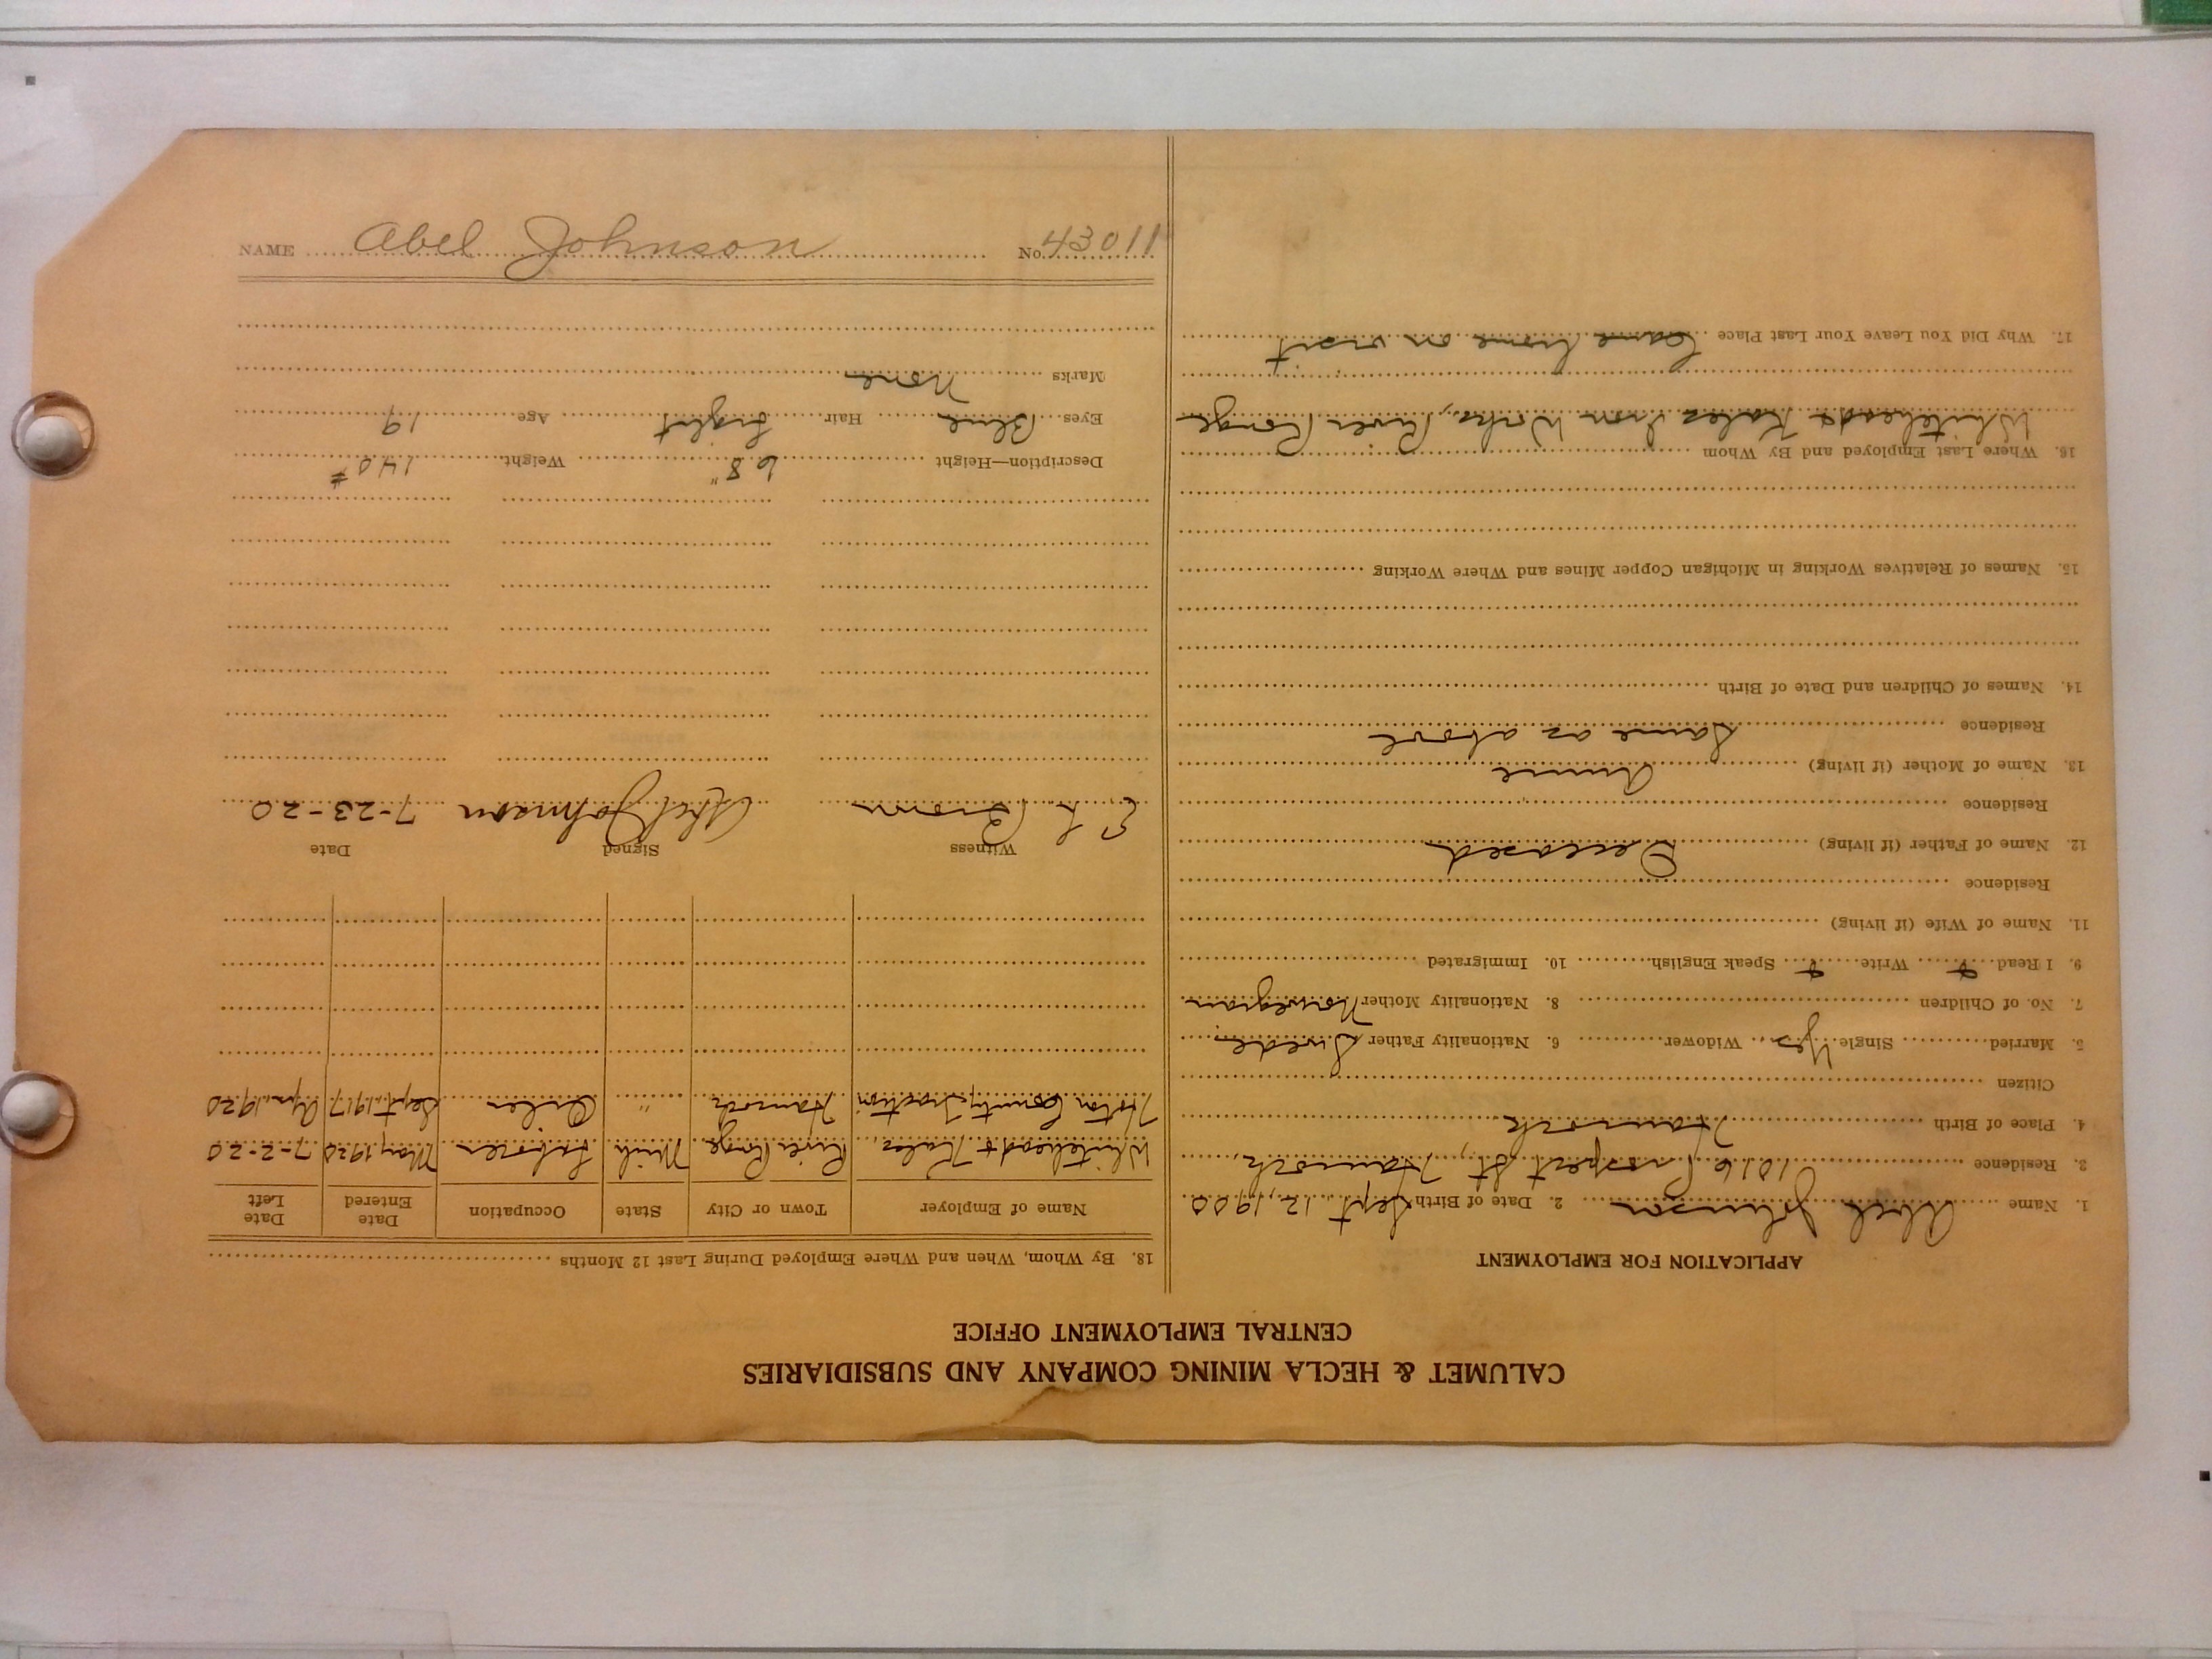 CALUMET & HECLA MINING COMPANY AND SUBSIDIARIES
CENTRAL EMPLOYMENT OFFICE
APPLICATION FOR EMPLOYMENT
1. Name Abel Johnson 2. Date of Birth Sept. 12, 1900
3. Residence 1016 Prospect St., Hancock,
4. Place of Birth Hancock
Citizen
5. Married Single Yes Widower 6. Nationality Father Swede
7. No. of Children 8. Nationality Mother Norwegian
9. I Read Write Speak English 10. Immigrated
11. Name of Wife (if living)
Residence
12. Name of Father (if living) Deceased
Residence
13. Name of Mother (if living) Annie
Residence Same as above
14. Names of Children and Date of Birth
15. Names of Relatives Working in Michigan Copper Mines and Where Working
16. Where Last Employed and By Whom
Whitehead & Kales Iron Works, River Rouge
17. Why Did You Leave Your Last Place Came home on visit
18. By Whom, When and Where Employed During Last 12 Months
Name of Employer Town or City State Occupation Date Entered Date Left
Whitehead & Kales, River Rouge Mich Laborer May 1920 7-2-20
Hoton County Traction Hancock " Oiler Sept. 1917 Apr. 1920
Witness Signed Date
E. L. Brown Abel Johnson 7-23-20
Description—Height 68" Weight 140#
Eyes Blue Hair Light Age 19
Marks None
NAME Abel Johnson No. 43011